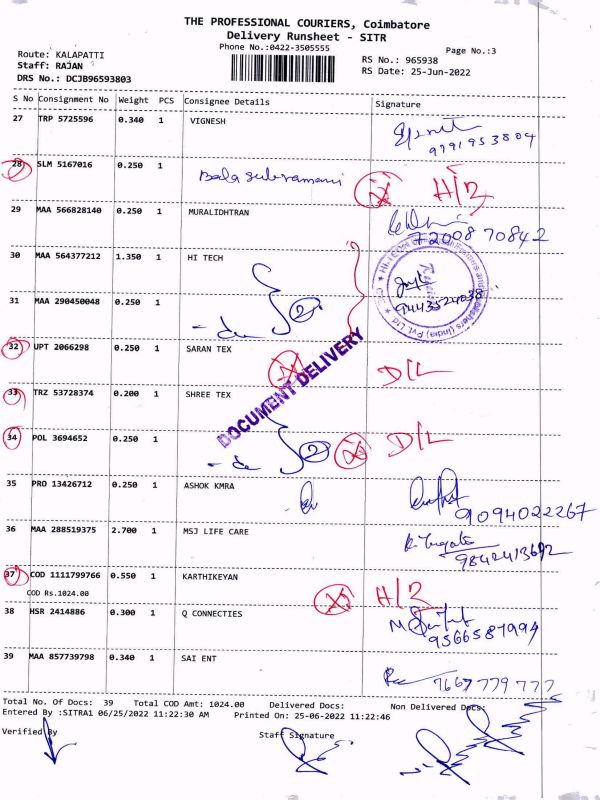 THE PROFESSIONAL COURIERS, Coimbatore
Delivery Runsheet - SITR
Phone No.:0422-3505555
Page No.:3
Route: KALAPATTI
Staff: RAJAN
DRS No.: DCJB96593803
RS No.: 965938
RS Date: 25-Jun-2022
S No Consignment No Weight PCS Consignee Details Signature
27 TRP 5725596 0.340 1 VIGNESH
9791953804
28 SLM 5167016 0.250 1 Balasubramani H/2
29 MAA 566828140 0.250 1 MURALIDHTRAN
7200870842
30 MAA 564377212 1.350 1 HI TECH
31 MAA 290450048 0.250 1
9443524038
- do 2
32 UPT 2066298 0.250 1 SARAN TEX D/L
DOCUMENT DELIVERY
33 TRZ 53728374 0.200 1 SHREE TEX
34 POL 3694652 0.250 1 D/L
- do 2
35 PRO 13426712 0.250 1 ASHOK KMRA
9094022267
36 MAA 288519375 2.700 1 MSJ LIFE CARE
9842413692
37 COD 1111799766 0.550 1 KARTHIKEYAN H/2
COD Rs.1024.00
38 HSR 2414886 0.300 1 Q CONNECTIES
39 MAA 857739798 0.340 1 SAI ENT
Total No. Of Docs: 39 Total COD Amt: 1024.00 Delivered Docs: Non Delivered Docs:
Entered By :SITRA1 06/25/2022 11:22:30 AM Printed On: 25-06-2022 11:22:46
Verified By Staff Signature